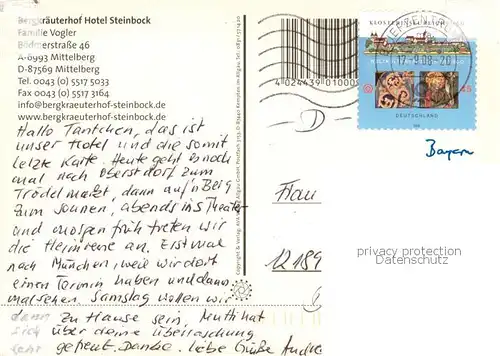 Bergkräuterhof Hotel Steinbock
Familie Vogler
Bödmerstraße 46
A-6993 Mittelberg
D-87569 Mittelberg
Tel. 0043 (0) 5517 5033
Fax 0043 (0) 5517 3164
info@bergkraeuterhof-steinbock.de
www.bergkraeuterhof-steinbock.de
Hallo Tantchen, das ist
unser Hotel und die somit
letzte Karte. Heute geht es noch
mal nach Oberstdorf zum
Trödelmarkt, dann auf'n Berg
zum Sonnen, abends ins Theater
und morgen früh treten wir
die Heimreise an. Erst mal
nach München, weil wir dort
einen Termin haben und dann
mal sehen. Samstag wollen wir
dann zu Hause sein. Mutti hat
sich über deine Überraschung
sehr gefreut. Danke. Liebe Grüße Andrea
4 024439 01000
17.-9.08-20
DEUTSCHLAND
45
Bayern
Frau
12189
privacy protection
Datenschutz